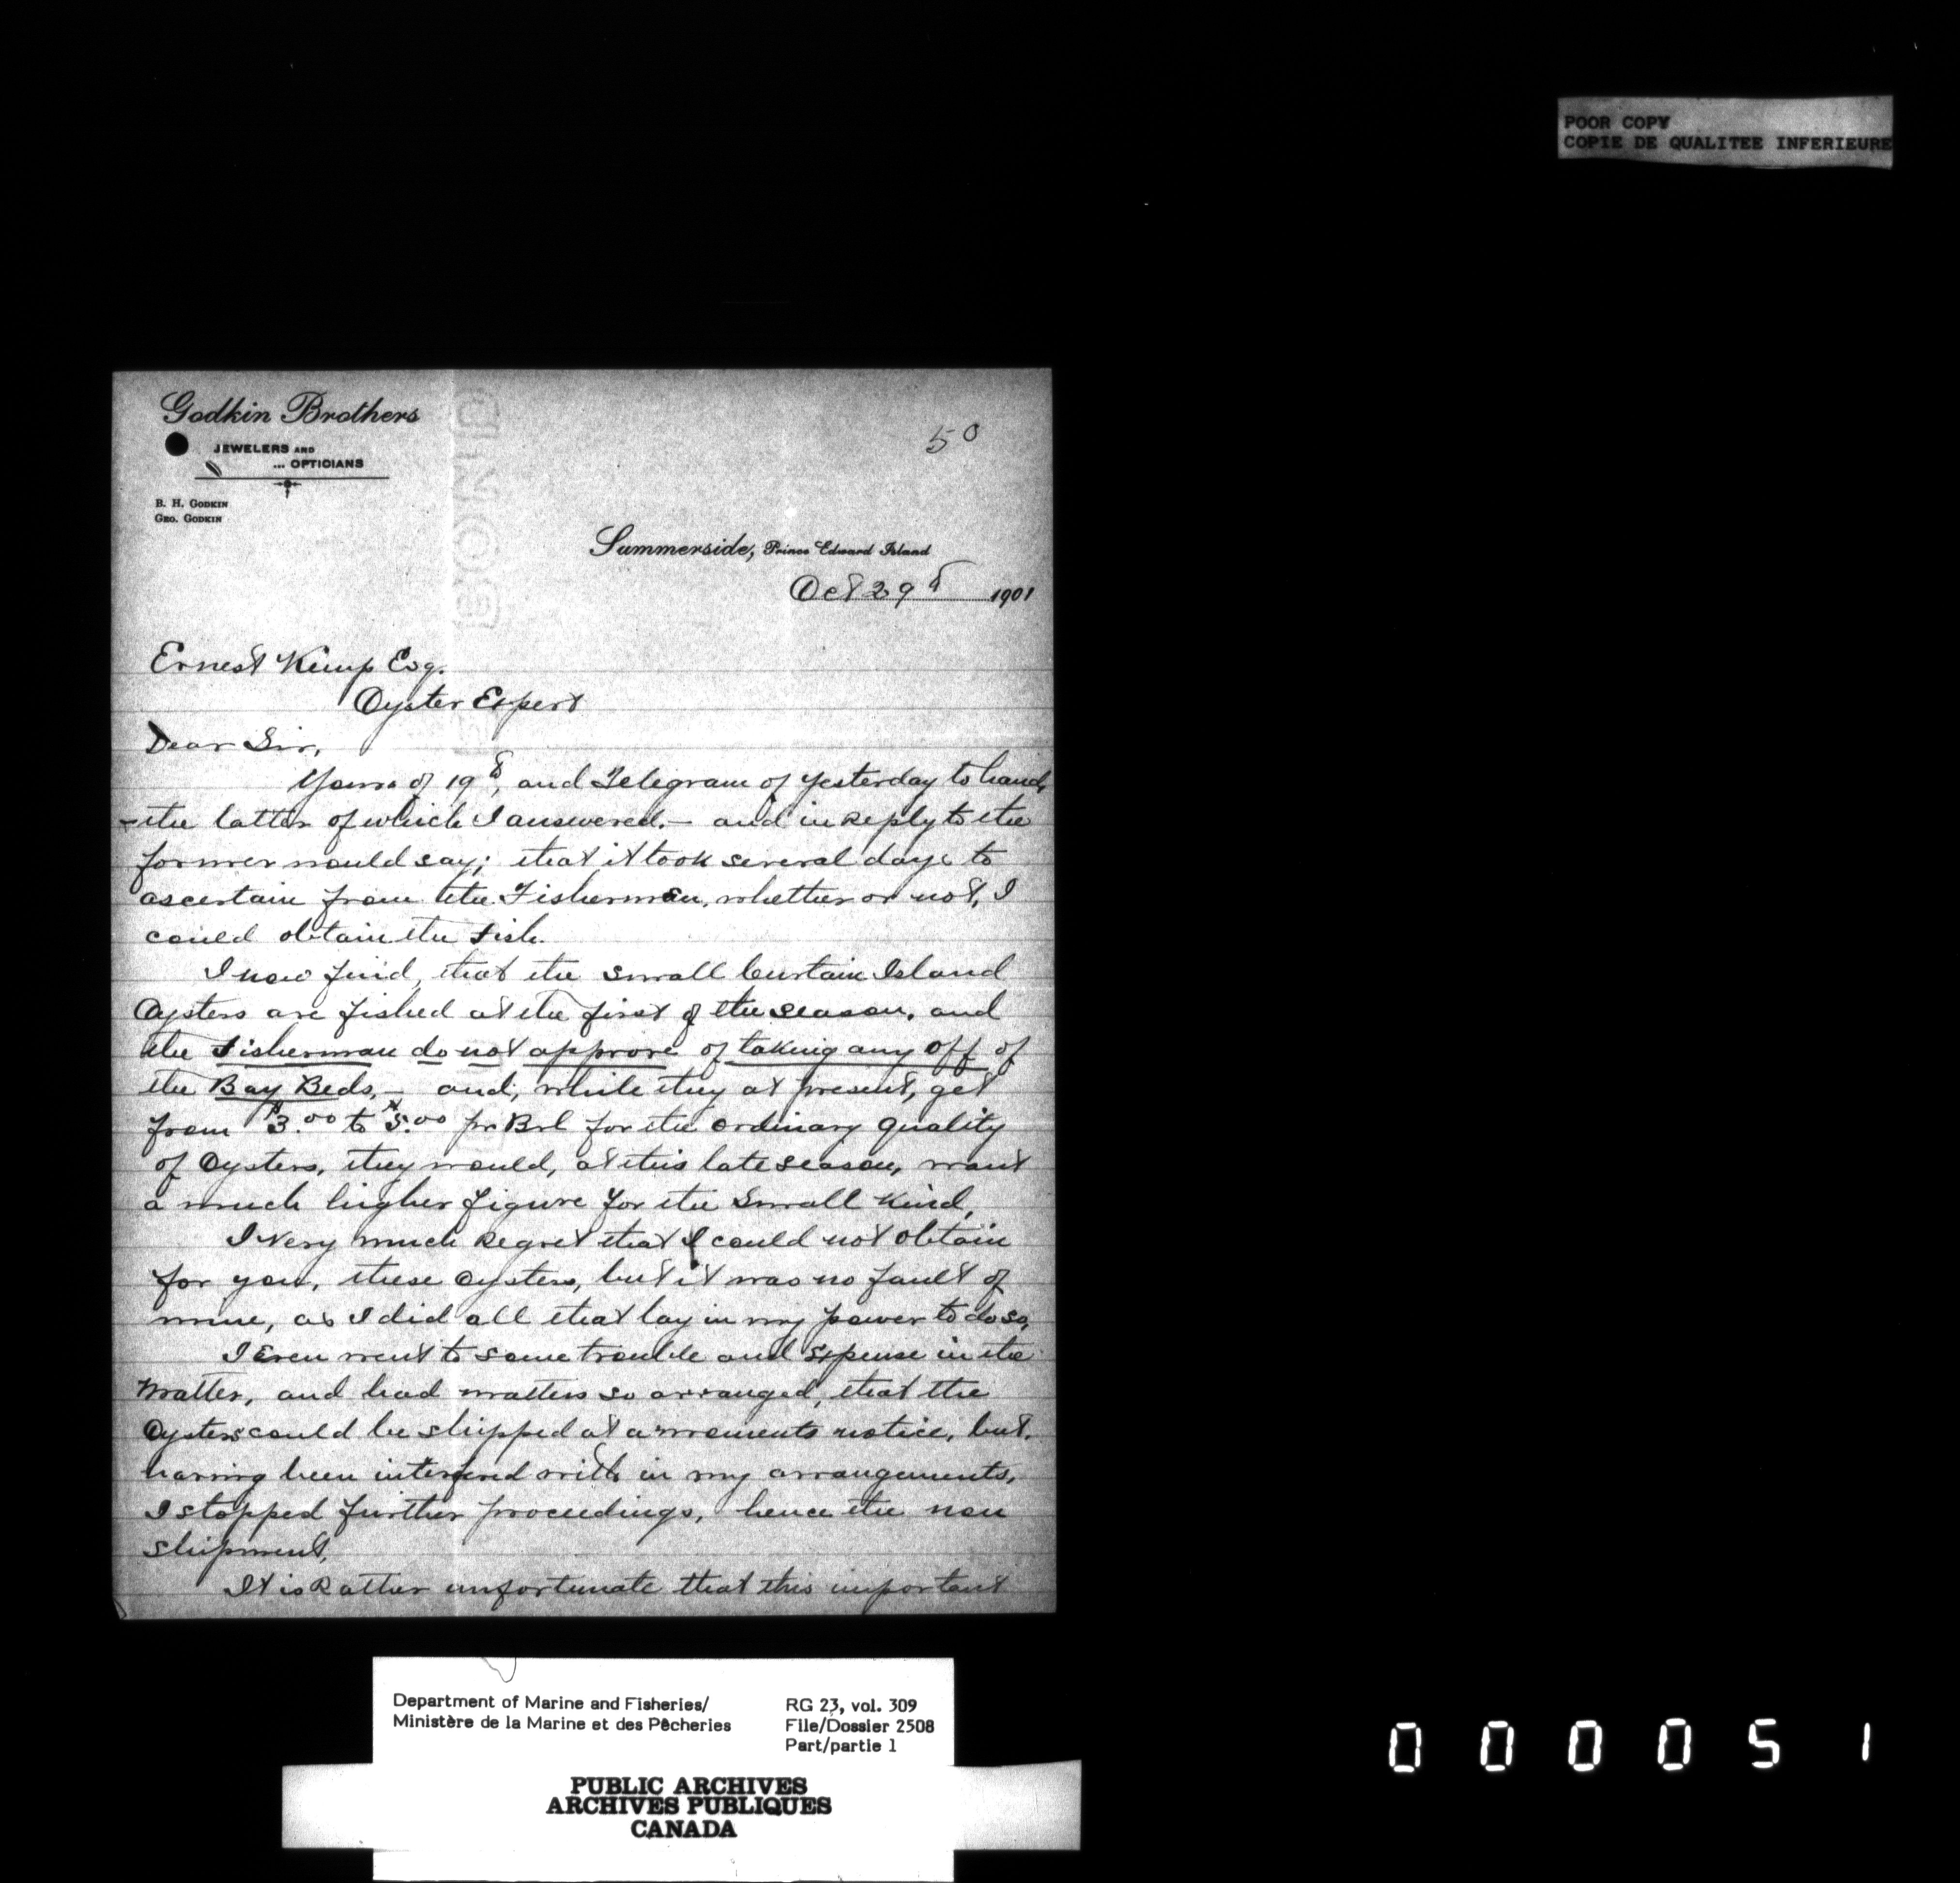 POOR COPY
COPIE DE QUALITEE INFERIEURE
Godkin Brothers
JEWELERS AND
... OPTICIANS
B. H. GODKIN
GEO. GODKIN
50
Summerside, Prince Edward Island
Oct 29th 1901
Ernest Kemp Esq.
Oyster Expert
Dear Sir,
Yours of 19th, and Telegram of yesterday to hand,
-the latter of which I answered.- and in Reply to the
former would say; that it took several days to
ascertain from the Fishermen, whether or not, I
could obtain the Fish.
I now find, that the small Curtain Island
Oysters are fished at the first of the season, and
the Fisherman do not approve of taking any off of
the Bay Beds,- and, while they at present, get
from $3.00 to $5.00 pr Brl for the ordinary quality
of Oysters, they would, at this late season, want
a much higher figure for the Small Kind,
I very much Regret that I could not obtain
for you, these oysters, but it was no fault of
mine, as I did all that lay in my power to do so,
I Even went to some trouble and Expense in the
Matter, and had matters so arranged, that the
Oysters could be shipped at a moments notice, but,
having been interfered with in my arrangements,
I stopped further proceedings, hence the non
shipment,
It is Rather unfortunate that this important
Department of Marine and Fisheries/
Ministère de la Marine et des Pêcheries
RG 23, vol. 309
File/Dossier 2508
Part/partie 1
PUBLIC ARCHIVES
ARCHIVES PUBLIQUES
CANADA
000051